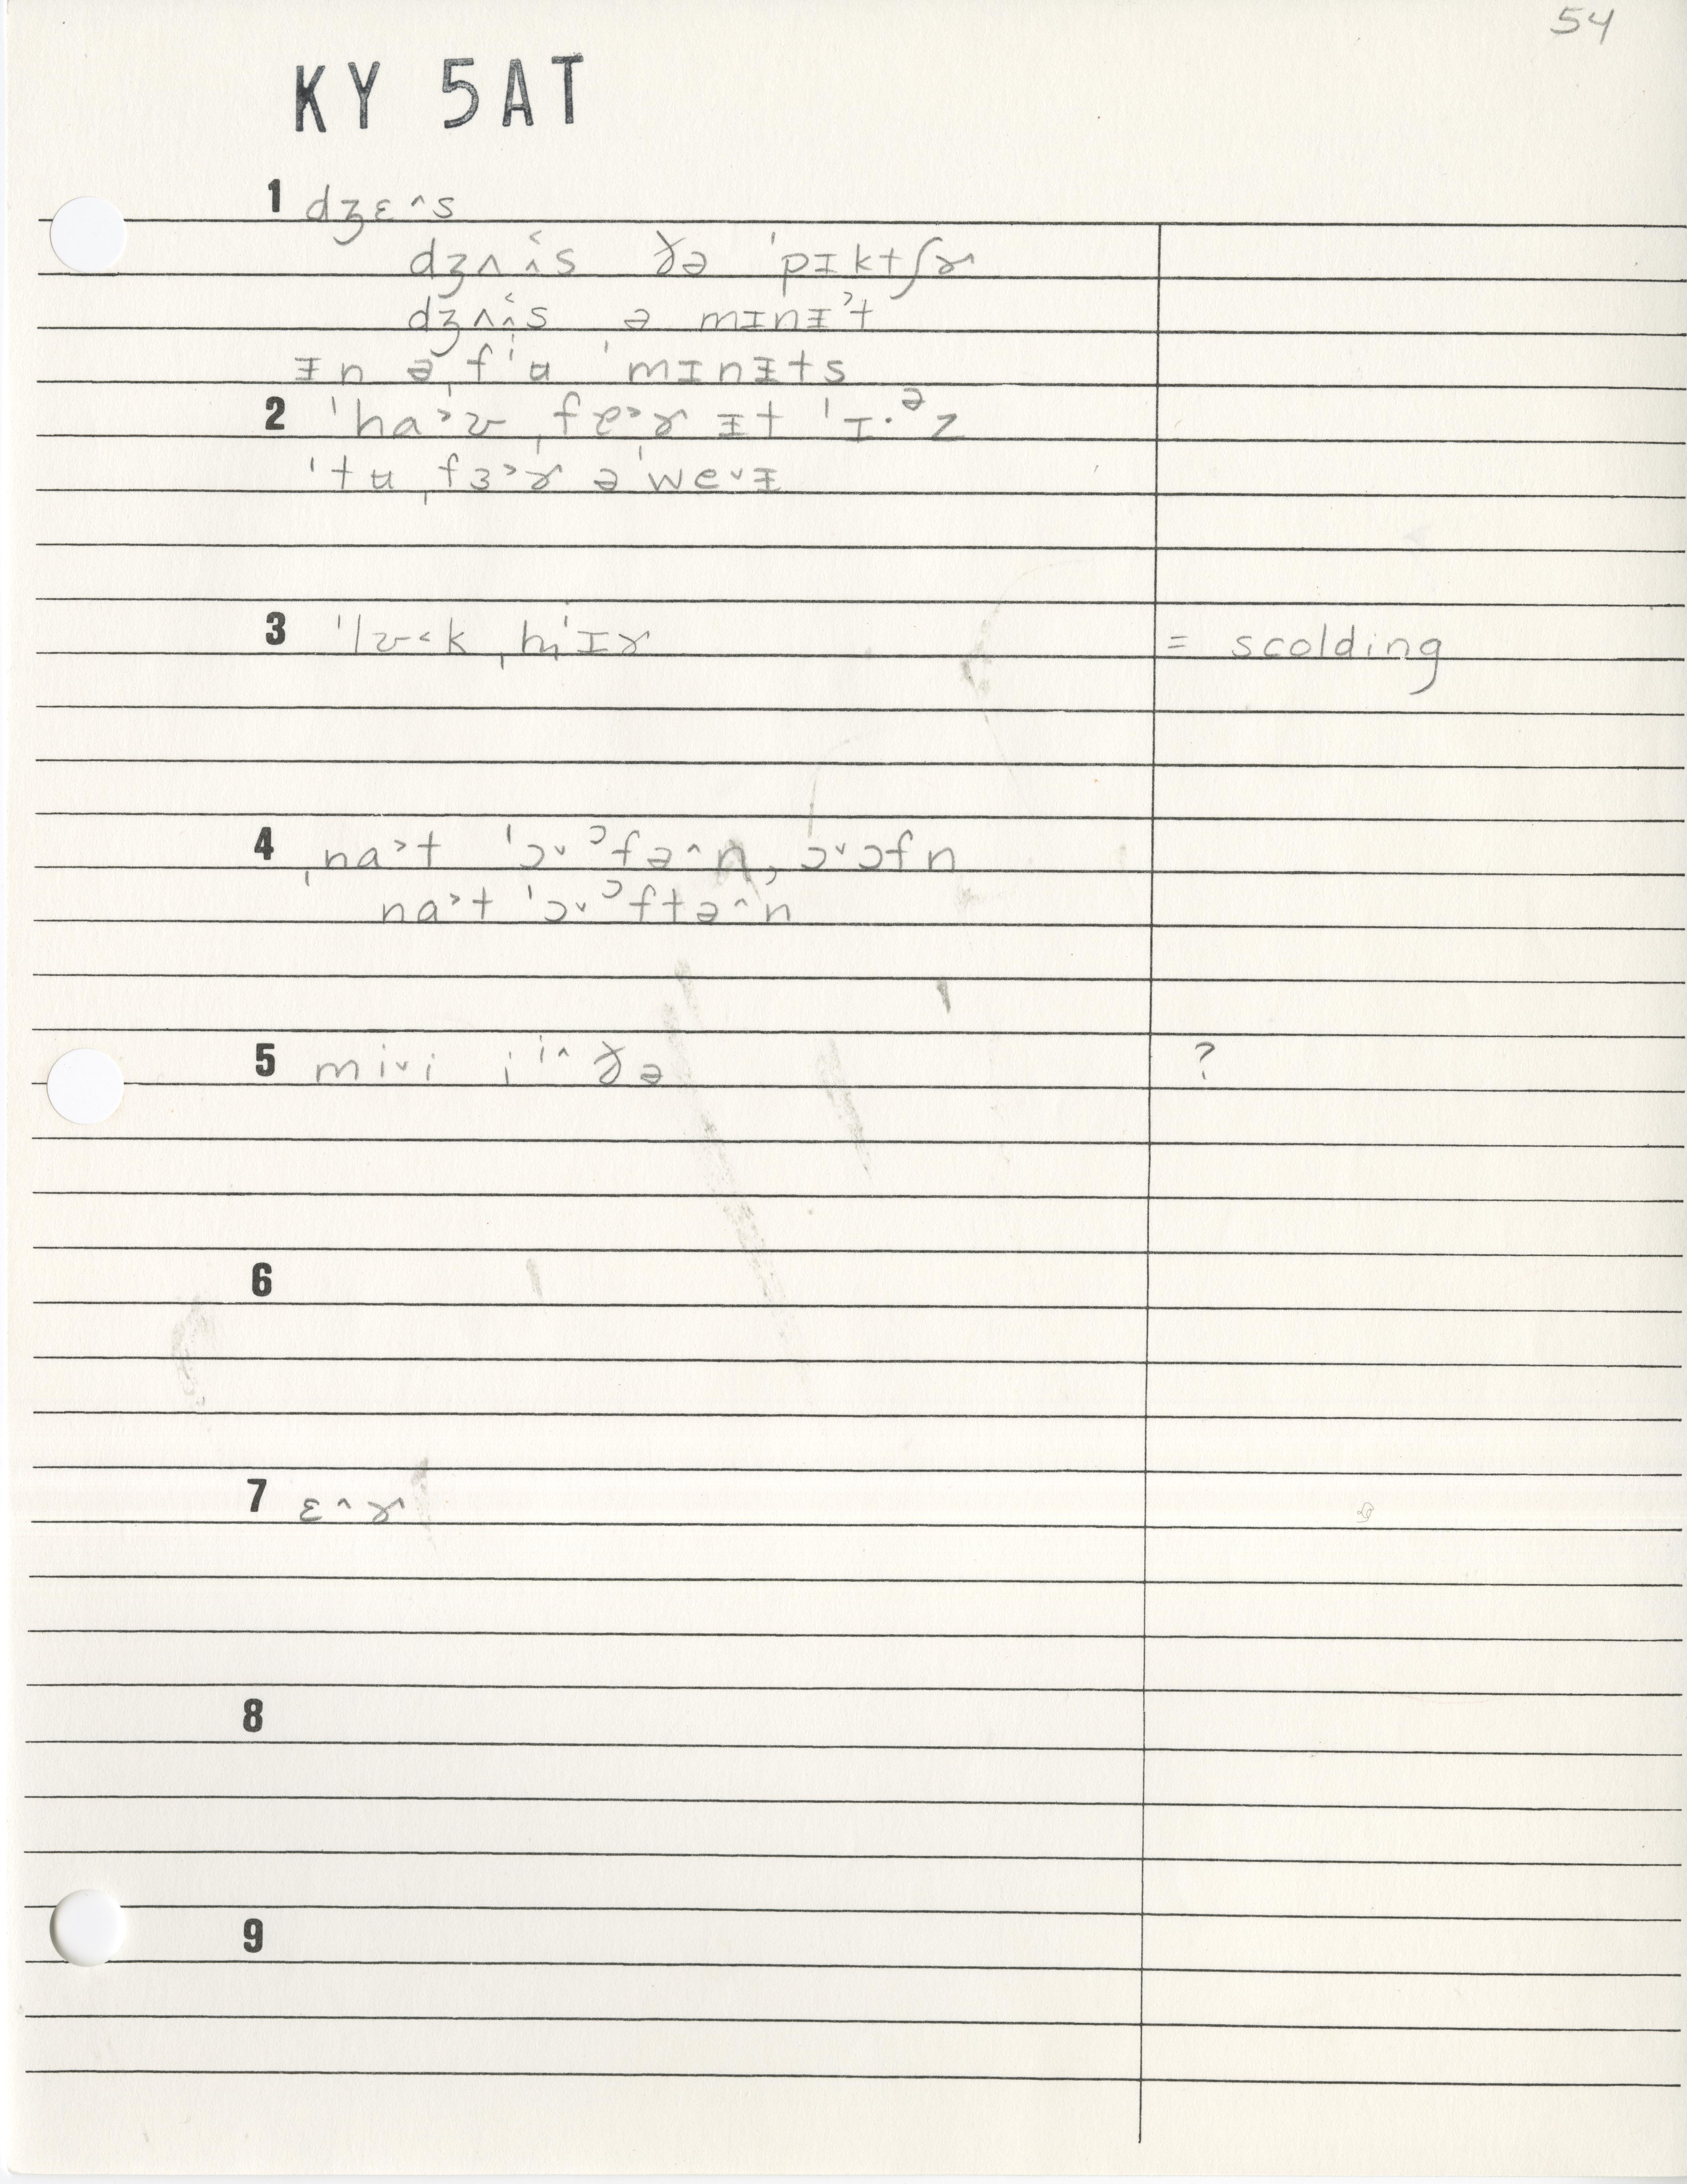 54
KY 5AT
1 dʒɛ^s
dʒʌ^˂s ðə ˈpɪktʃɚ
dʒʌ^˂s ə mɪnɪ˃t
ɪn ə ˌfʹʉ ˈmɪnɪts
2 ˈha˃ʊ ˌfɝ˃ɚ ɪt ˈɪ·ᵊz
ˈtʉ ˌfɜ˃ɚ əˈwe˅ɪ
3 ˈlʊ˂k ˌhɪɚ = scolding
4 ˌna˃t ˈɔ˅ᵓfə^n, ɔ˅ɔfn
na˃t ˈɔ˅ᵓftə^n
5 mi˅i iⁱ^ ðə ?
6
7 ɛ^ɚ
8
9